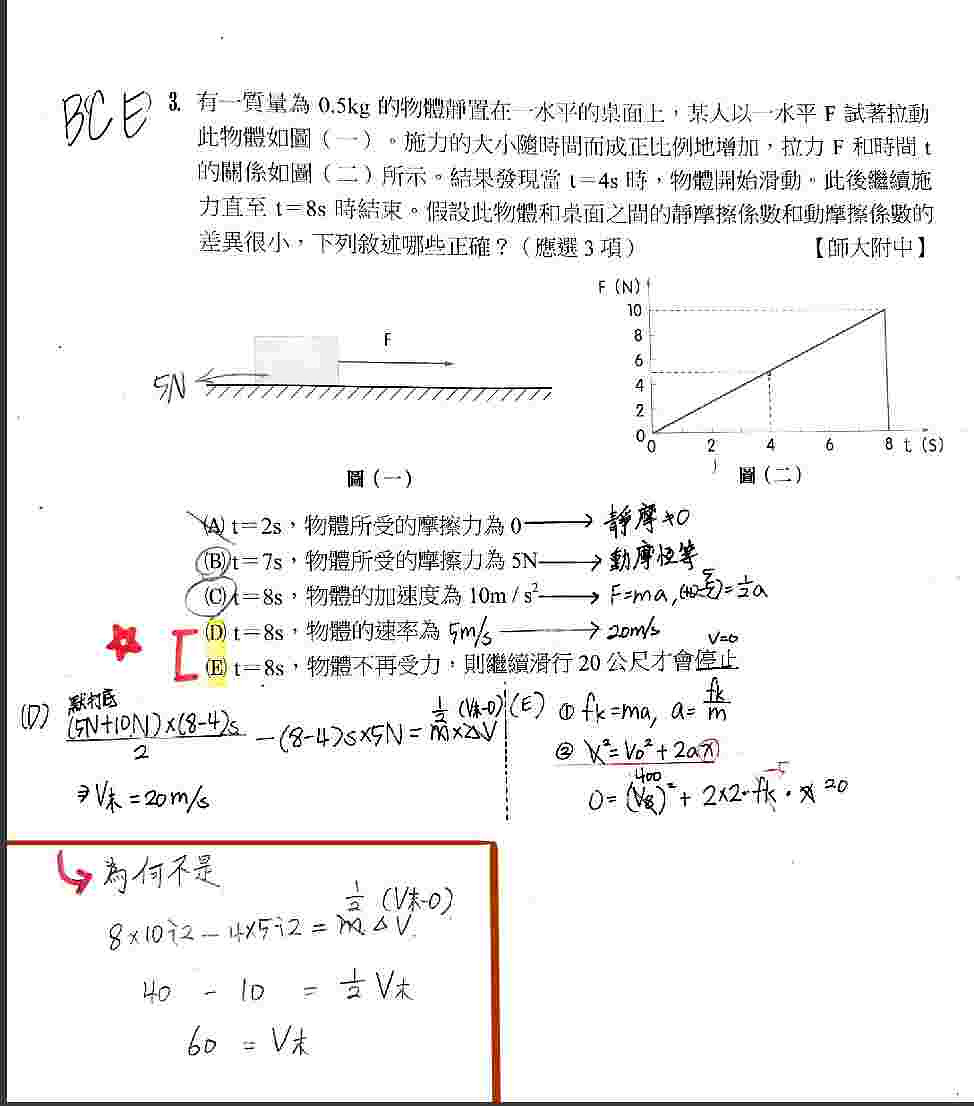 BCE
3. 有一質量為 0.5kg 的物體靜置在一水平的桌面上，某人以一水平 F 試著拉動
此物體如圖（一）。施力的大小隨時間而成正比例地增加，拉力 F 和時間 t
的關係如圖（二）所示。結果發現當 t＝4s 時，物體開始滑動。此後繼續施
力直至 t＝8s 時結束。假設此物體和桌面之間的靜摩擦係數和動摩擦係數的
差異很小，下列敘述哪些正確？（應選 3 項）【師大附中】
F
5N
圖（一）
F (N)
10
8
6
4
2
0
0 2 4 6 8 t (S)
圖（二）
(A) t＝2s，物體所受的摩擦力為 0 → 靜摩≠0
(B) t＝7s，物體所受的摩擦力為 5N → 動摩恆等
(C) t＝8s，物體的加速度為 10m / s² → F=ma, (10-5)=½a
(D) t＝8s，物體的速率為 5m/s → 20m/s
(E) t＝8s，物體不再受力，則繼續滑行 20 公尺才會停止
V=0
(D) (5N+10N)×(8-4)s / 2 - (8-4)s×5N = m×ΔV
½ (V末-0)
⇒ V末 = 20m/s
(E) ① fk=ma, a= fk/m
② V²=V₀²+2ax
400
0=(V8)²+ 2×2·fk·x 20
為何不是
½ (V末-0)
8×10÷2 - 4×5÷2 = m ΔV
40 - 10 = ½ V末
60 = V末